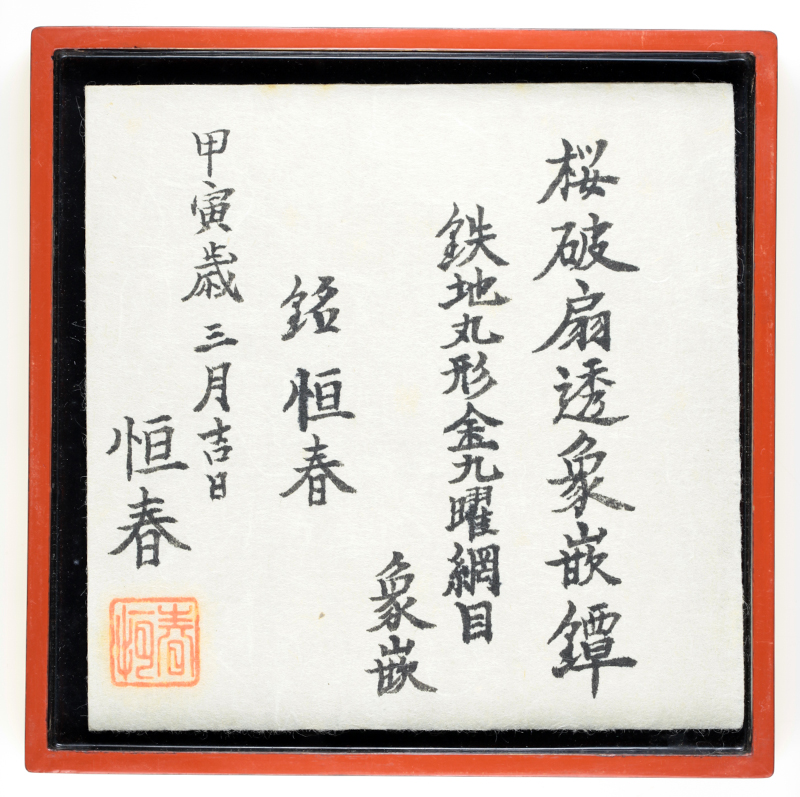 桜破扇透象嵌鐔
鉄地丸形金九曜網目
象嵌
銘恒春
甲寅歳三月吉日
恒春
恒春